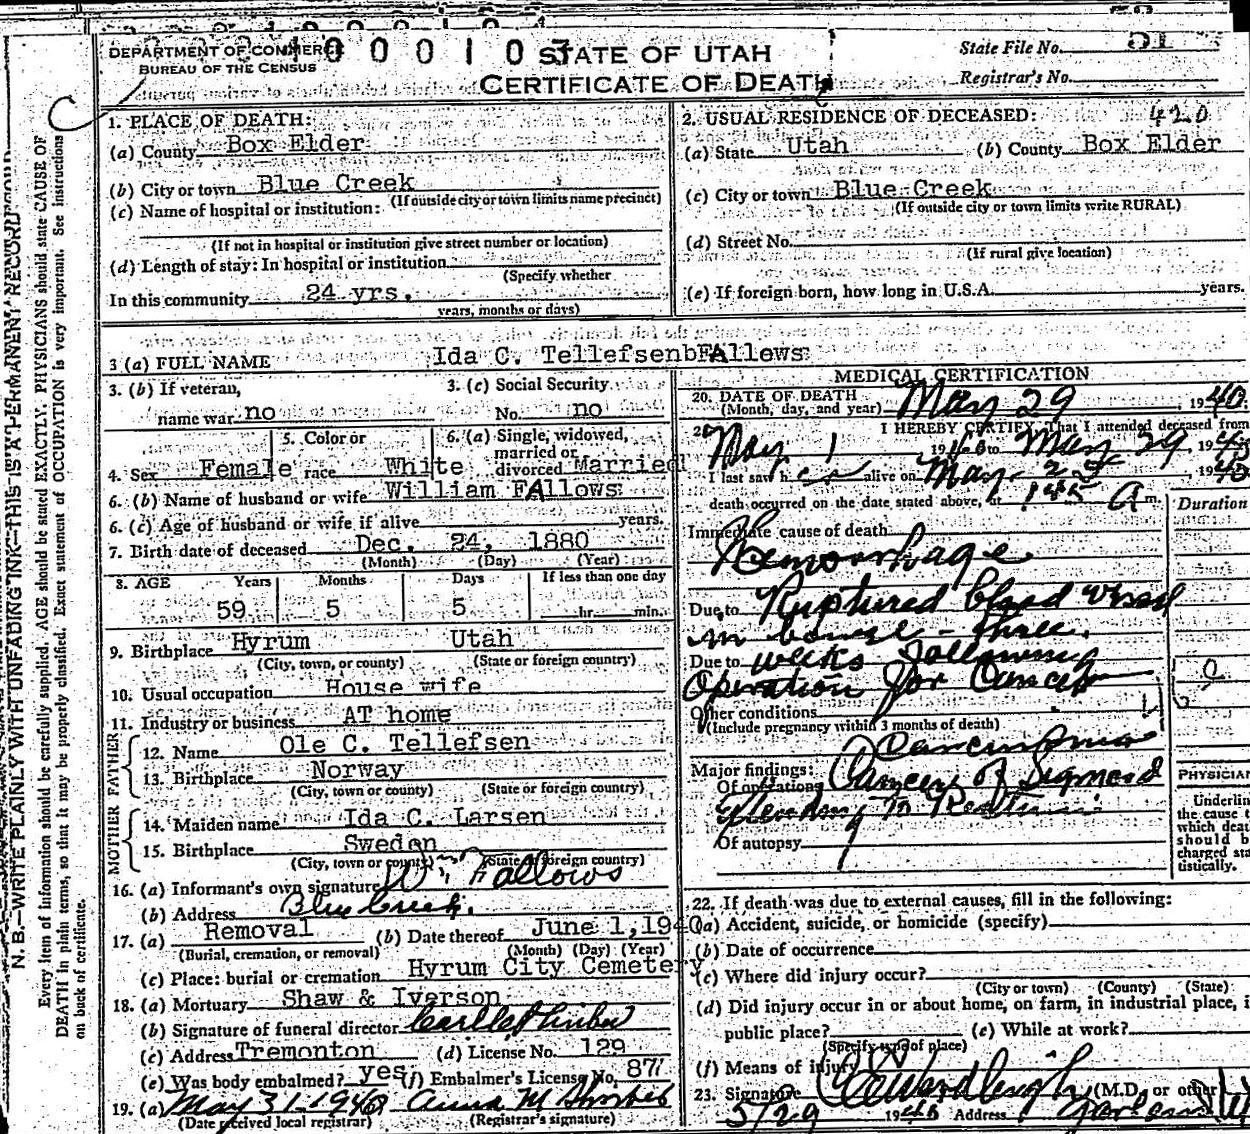 DEPARTMENT OF COMMERCE
BUREAU OF THE CENSUS
STATE OF UTAH
CERTIFICATE OF DEATH
State File No. 51
Registrar's No.
1. PLACE OF DEATH:
(a) County Box Elder
(b) City or town Blue Creek
(If outside city or town limits name precinct)
(c) Name of hospital or institution:
(If not in hospital or institution give street number or location)
(d) Length of stay: In hospital or institution
(Specify whether
In this community 24 yrs.
years, months or days)
2. USUAL RESIDENCE OF DECEASED: 420
(a) State Utah (b) County Box Elder
(c) City or town Blue Creek
(If outside city or town limits write RURAL)
(d) Street No.
(If rural give location)
(e) If foreign born, how long in U.S.A. years.
3 (a) FULL NAME Ida C. TellefsenbFAllows
3. (b) If veteran, name war no
3. (c) Social Security No. no
4. Sex Female
5. Color or race White
6. (a) Single, widowed, married or divorced Married
6. (b) Name of husband or wife William FAllows
6. (c) Age of husband or wife if alive years.
7. Birth date of deceased Dec. 24, 1880
(Month) (Day) (Year)
8. AGE Years Months Days If less than one day
59 5 5 hr. min.
9. Birthplace Hyrum Utah
(City, town, or county) (State or foreign country)
10. Usual occupation House wife
11. Industry or business AT home
FATHER
12. Name Ole C. Tellefsen
13. Birthplace Norway
(City, town or county) (State or foreign country)
MOTHER
14. Maiden name Ida C. Larsen
15. Birthplace Sweden
(City, town or county) (State or foreign country)
16. (a) Informant's own signature Wm Fallows
(b) Address Blue Creek.
17. (a) Removal (b) Date thereof June 1, 1940
(Burial, cremation, or removal) (Month) (Day) (Year)
(c) Place: burial or cremation Hyrum City Cemetery
18. (a) Mortuary Shaw & Iverson
(b) Signature of funeral director
(c) Address Tremonton (d) License No. 129
(e) Was body embalmed? yes (f) Embalmer's License No. 877
19. (a) May 31-1940 Anna M
(Date received local registrar) (Registrar's signature)
MEDICAL CERTIFICATION
20. DATE OF DEATH
(Month, day, and year) May 29 1940.
I HEREBY CERTIFY, That I attended deceased from
May 1 1940 to May 29 1940
I last saw her alive on May 1940
death occurred on the date stated above, at 145 A m.
Duration
Immediate cause of death
Hemorrhage
Due to Ruptured blood vessel
in bowel - three
Due to weeks following
Operation for Cancer
Other conditions
(Include pregnancy within 3 months of death)
Carcinoma
Major findings:
Of operations Cancer of Sigmoid
Of autopsy
PHYSICIAN
Underlin
the cause t
which deat
should b
charged sta
tistically.
22. If death was due to external causes, fill in the following:
(a) Accident, suicide, or homicide (specify)
(b) Date of occurrence
(c) Where did injury occur?
(City or town) (County) (State)
(d) Did injury occur in or about home, on farm, in industrial place, i
public place? (e) While at work?
(Specify type of place)
(f) Means of injury
23. Signature (M.D. or other)
5/29 1940 Address Garland
N. B.—WRITE PLAINLY WITH UNFADING INK—THIS IS A PERMANENT RECORD
Every item of information should be carefully supplied. AGE should be stated EXACTLY. PHYSICIANS should state CAUSE OF
DEATH in plain terms, so that it may be properly classified. Exact statement of OCCUPATION is very important. See instructions
on back of certificate.